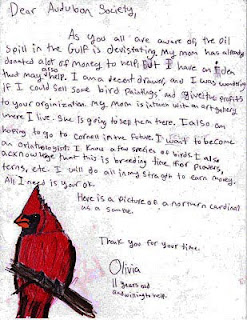 Dear Audubon Society,
As you all are aware of the oil
spill in the Gulf is devistating. My mom has already
donated alot of money to help, but I have an iden
that may also help. I am a decent drawer, and I was wondering
if I could sell some bird paintings and give the profits
to your orginization. My mom is in touch with an art gallery
where I live. She is going to sell them there. I also am
hoping to go to Cornell in the future. I want to become
an Orinthologist. I know a few species of birds. I also
acknowledge that this is breeding time for plovers,
terns, etc. I will do all in my strength to earn money.
All I need is your ok.
Here is a picture of a northern cardinal
as a sample.
Thank you for your time.
Olivia
11 years old
and willing to help.